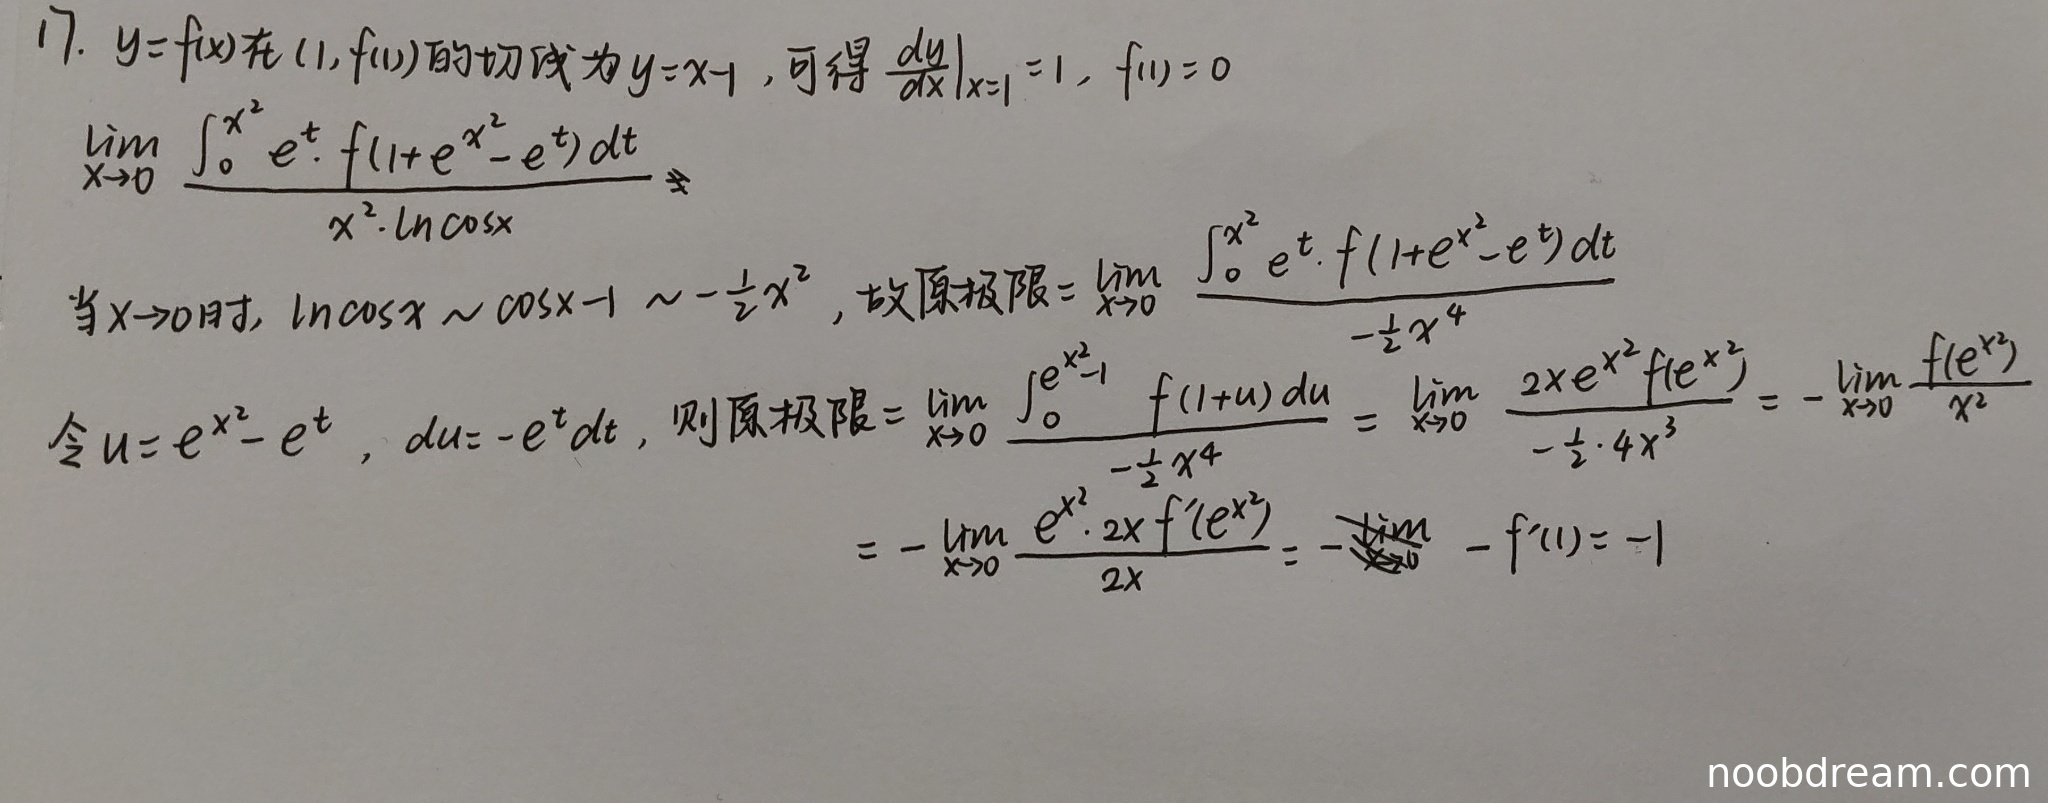 17. y=f(x)在(1,f(1))的切线为y=x-1,可得 dy/dx|x=1 =1, f(1)=0
lim x→0 ∫₀^(x²) e^t·f(1+e^(x²)-e^t)dt / (x²·ln cosx)
当x→0时, ln cosx ~ cosx-1 ~ -½x², 故原极限= lim x→0 ∫₀^(x²) e^t·f(1+e^(x²)-e^t)dt / (-½x⁴)
令u=e^(x²)-e^t, du=-e^t dt, 则原极限= lim x→0 ∫₀^(e^(x²)-1) f(1+u)du / (-½x⁴) = lim x→0 2xe^(x²)f(e^(x²)) / (-½·4x³) = - lim x→0 f(e^(x²)) / x²
= - lim x→0 e^(x²)·2x f'(e^(x²)) / 2x = - f'(1) = -1
noobdream.com